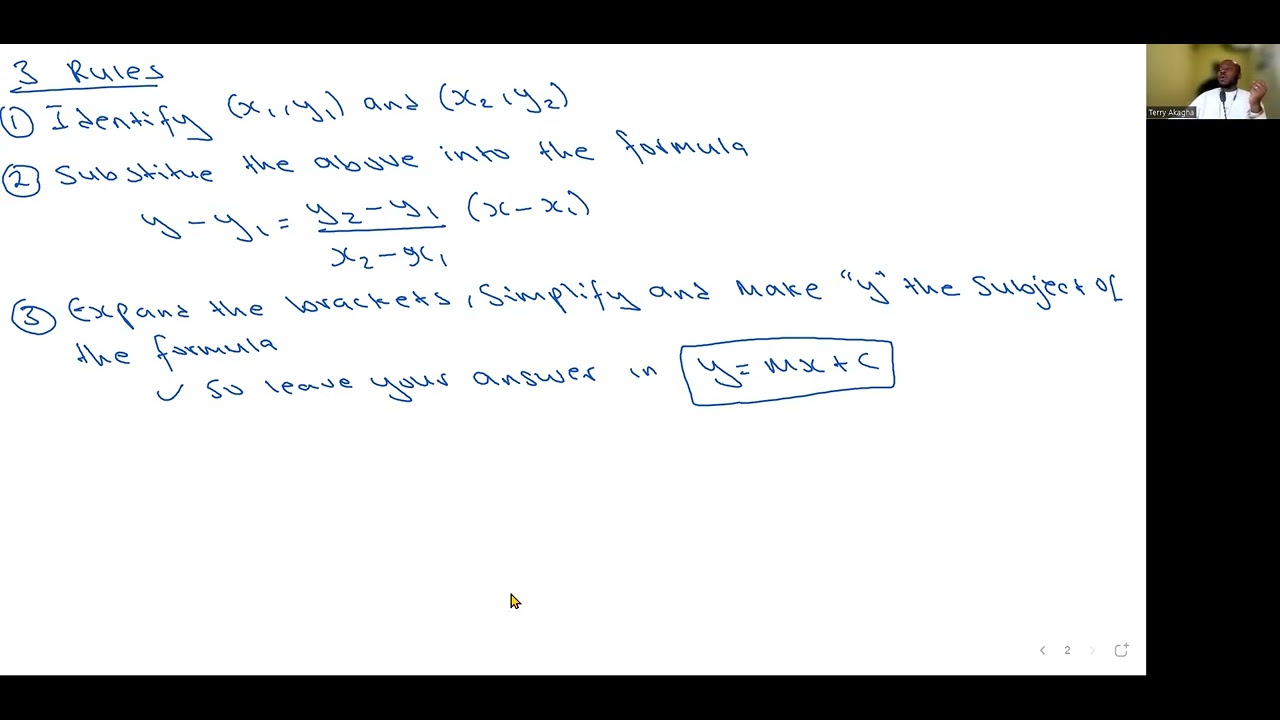 3 Rules
① Identify (x₁, y₁) and (x₂, y₂)
② Substitue the above into the formula
y - y₁ = \frac{y₂ - y₁}{x₂ - x₁} (x - x₁)
③ Expand the brackets, Simplify and Make "y" the Subject of
the formula
✓ So leave your answer in y = mx + c
Terry Akagha
2